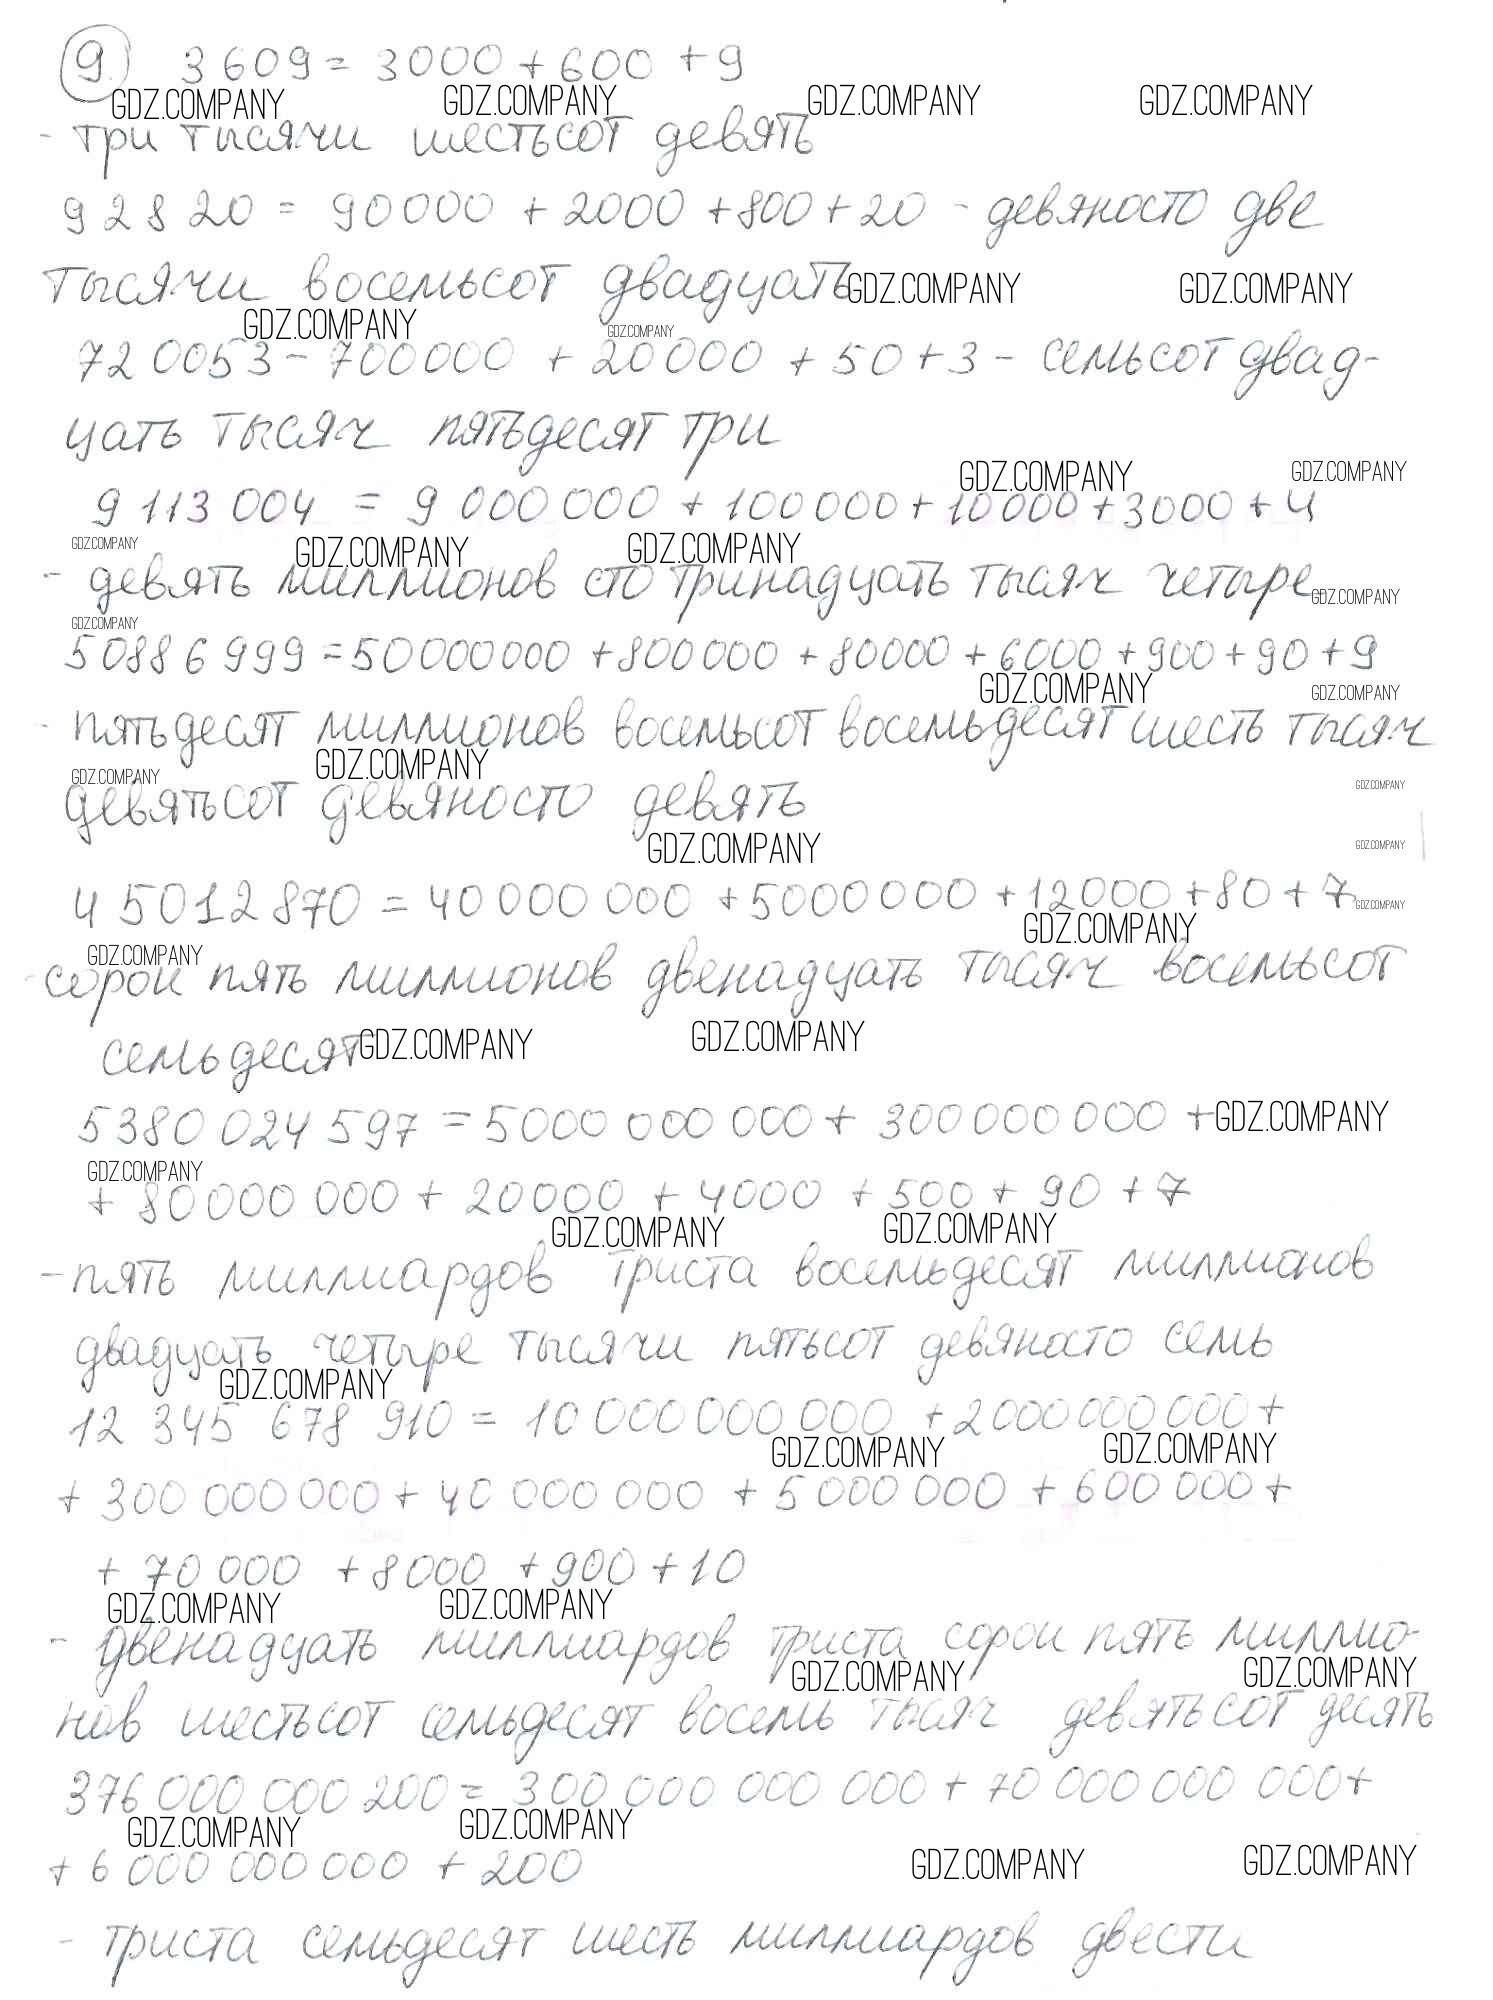 9 3609 = 3000 + 600 + 9
GDZ.COMPANY GDZ.COMPANY GDZ.COMPANY GDZ.COMPANY
- три тысячи шестьсот девять
92820 = 90000 + 2000 + 800 + 20 - девяносто две
тысячи восемьсот двадцать
GDZ.COMPANY GDZ.COMPANY
GDZ.COMPANY GDZ.COMPANY
720053 - 700000 + 20000 + 50 + 3 - семьсот двад-
цать тысяч пятьдесят три
GDZ.COMPANY GDZ.COMPANY
9 113 004 = 9 000 000 + 100 000 + 10 000 + 3000 + 4
GDZ.COMPANY GDZ.COMPANY GDZ.COMPANY
- девять миллионов сто тринадцать тысяч четыре
GDZ.COMPANY
GDZ.COMPANY
50886999 = 50000000 + 800000 + 80000 + 6000 + 900 + 90 + 9
GDZ.COMPANY GDZ.COMPANY
- пятьдесят миллионов восемьсот восемьдесят шесть тысяч
GDZ.COMPANY GDZ.COMPANY GDZ.COMPANY
девятьсот девяносто девять
GDZ.COMPANY GDZ.COMPANY
45012870 = 40 000 000 + 5000000 + 12000 + 80 + 7
GDZ.COMPANY
GDZ.COMPANY GDZ.COMPANY
- сорок пять миллионов двенадцать тысяч восемьсот
семьдесят
GDZ.COMPANY GDZ.COMPANY
5380 024 597 = 5000 000 000 + 300 000 000 +
GDZ.COMPANY
GDZ.COMPANY
+ 80000 000 + 20000 + 4000 + 500 + 90 + 7
GDZ.COMPANY GDZ.COMPANY
- пять миллиардов триста восемьдесят миллионов
двадцать четыре тысячи пятьсот девяносто семь
GDZ.COMPANY
12 345 678 910 = 10 000 000 000 + 2000 000 000 +
GDZ.COMPANY GDZ.COMPANY
+ 300 000 000 + 40 000 000 + 5 000 000 + 600 000 +
+ 70 000 + 8000 + 900 + 10
GDZ.COMPANY GDZ.COMPANY
- двенадцать миллиардов триста сорок пять миллио-
GDZ.COMPANY GDZ.COMPANY
нов шестьсот семьдесят восемь тысяч девятьсот десять
376 000 000 200 = 300 000 000 000 + 70 000 000 000 +
GDZ.COMPANY GDZ.COMPANY
+ 6 000 000 000 + 200
GDZ.COMPANY GDZ.COMPANY
- триста семьдесят шесть миллиардов двести